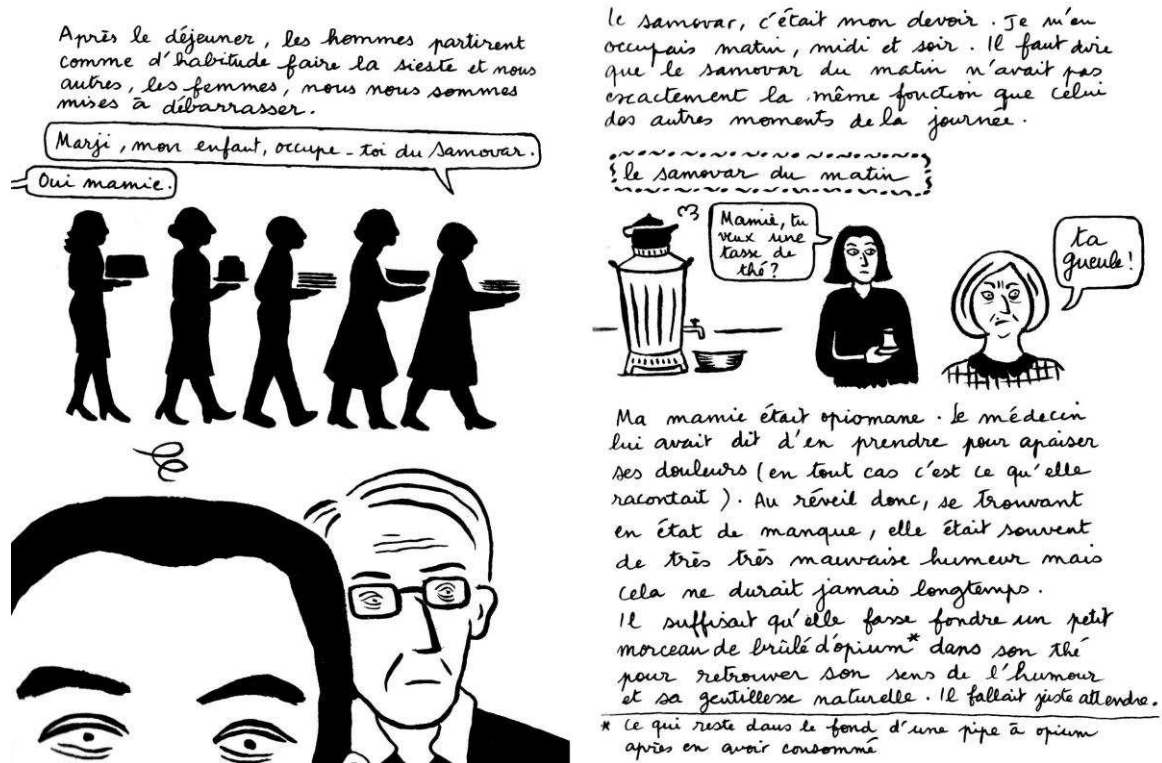 Après le déjeuner, les hommes partirent
comme d'habitude faire la sieste et nous
autres, les femmes, nous nous sommes
mises à débarrasser.
Marji, mon enfant, occupe-toi du samovar.
Oui mamie.
le samovar, c'était mon devoir. Je m'en
occupais matin, midi et soir. Il faut dire
que le samovar du matin n'avait pas
exactement la même fonction que celui
des autres moments de la journée.
le samovar du matin
Mamie, tu
veux une
tasse de
thé ?
ta
gueule !
Ma mamie était opiomane. Le médecin
lui avait dit d'en prendre pour apaiser
ses douleurs (en tout cas c'est ce qu'elle
racontait). Au réveil donc, se trouvant
en état de manque, elle était souvent
de très très mauvaise humeur mais
cela ne durait jamais longtemps.
Il suffisait qu'elle fasse fondre un petit
morceau de brûlé d'opium* dans son thé
pour retrouver son sens de l'humour
et sa gentillesse naturelle. Il fallait juste attendre.
* Ce qui reste dans le fond d'une pipe à opium
après en avoir consommé